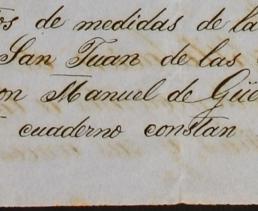 os de medidas de la
San Juan de las
on Manuel de Güe
cuaderno constan